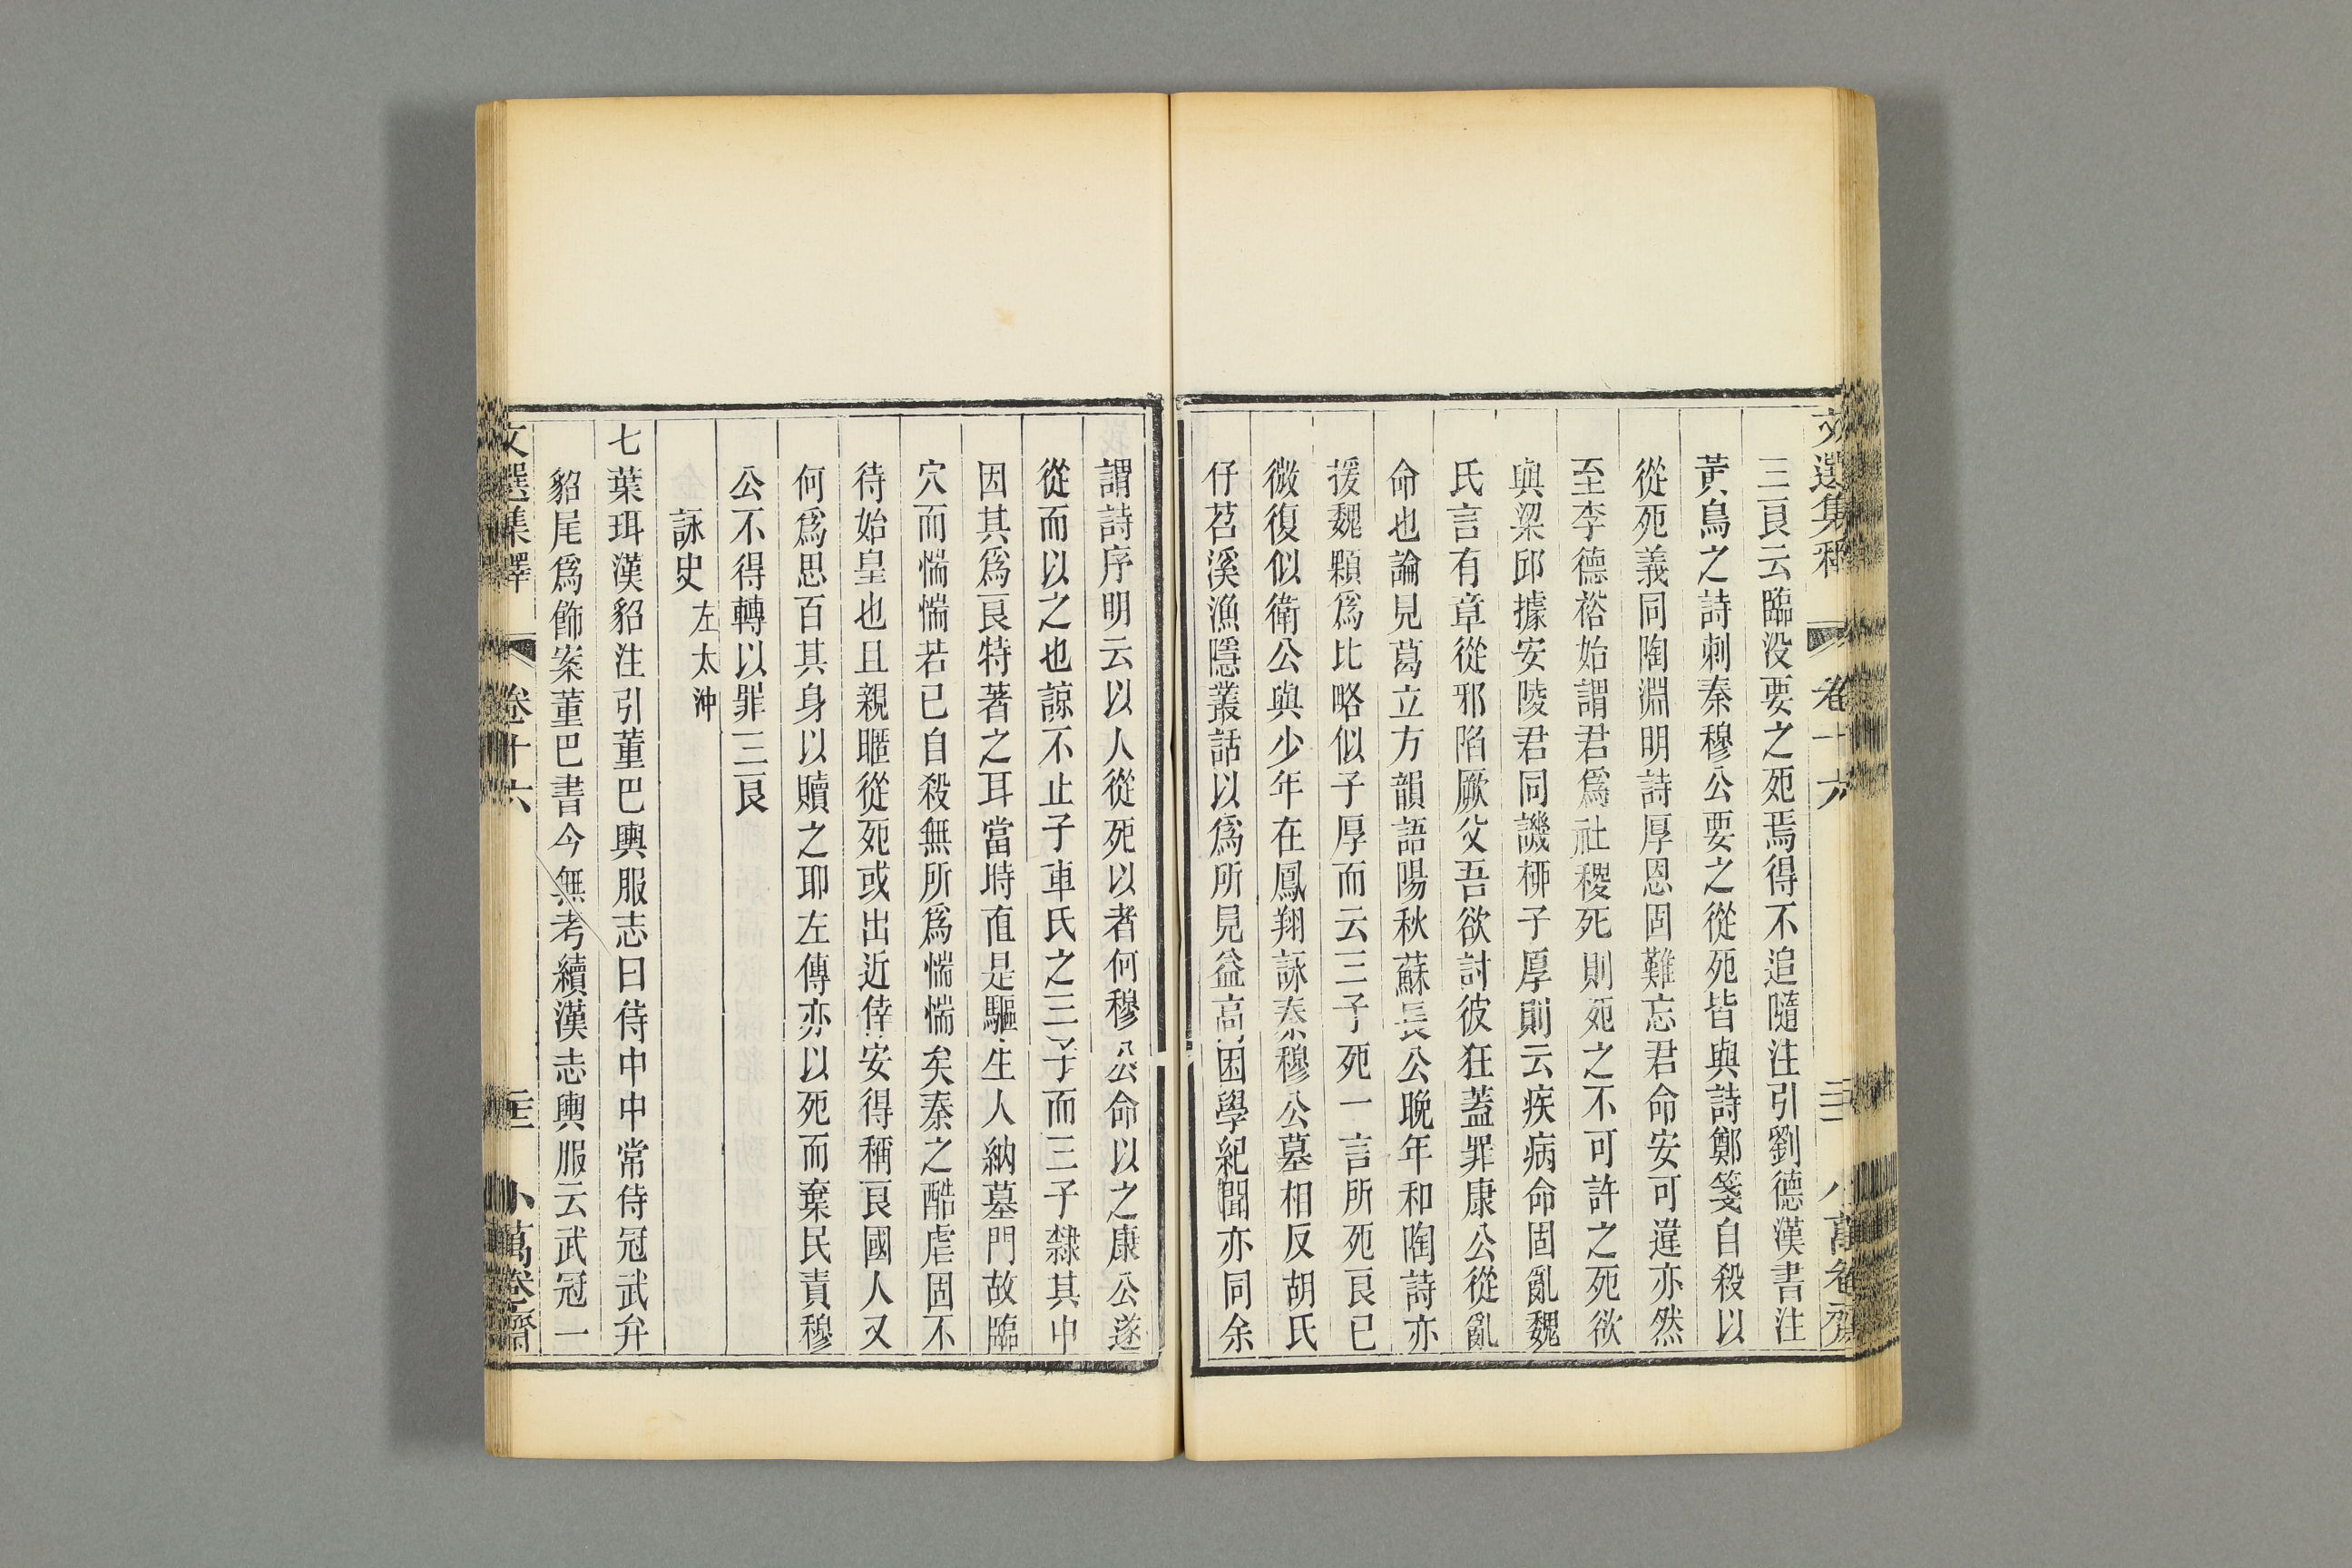 文選集釋 卷十六 小萬卷齋
三良云臨沒要之死焉得不追隨注引劉德漢書注
黃鳥之詩刺秦穆公要之從死皆與詩鄭箋自殺以
從死義同陶淵明詩厚恩固難忘君命安可違亦然
至李德裕始謂君爲社稷死則死之不可許之死欲
與梁邱據安陵君同譏栁子厚則云疾病命固亂魏
氏言有章從邪陷厥父吾欲討彼狂蓋罪康公從亂
命也論見葛立方韻語陽秋蘇長公晚年和陶詩亦
援魏顆爲比略似子厚而云三子死一言所死良已
微復似衛公與少年在鳳翔詠秦穆公墓相反胡氏
仔苕溪漁隱叢話以爲所見益高困學紀聞亦同余
謂詩序明云以人從死以者何穆公命以之康公遂
從而以之也諒不止子車氏之三子而三子隸其中
因其爲良特著之耳當時直是驅生人納墓門故臨
穴而惴惴若已自殺無所爲惴惴矣秦之酷虐固不
待始皇也且親暱從死或出近倖安得稱良國人又
何爲思百其身以贖之耶左傳亦以死而棄民責穆
公不得轉以罪三良
詠史 左太沖
七葉珥漢貂注引董巴輿服志曰侍中中常侍冠武弁
貂尾爲飾案董巴書今無考續漢志輿服云武冠一
文選集釋 卷十六 小萬卷齋